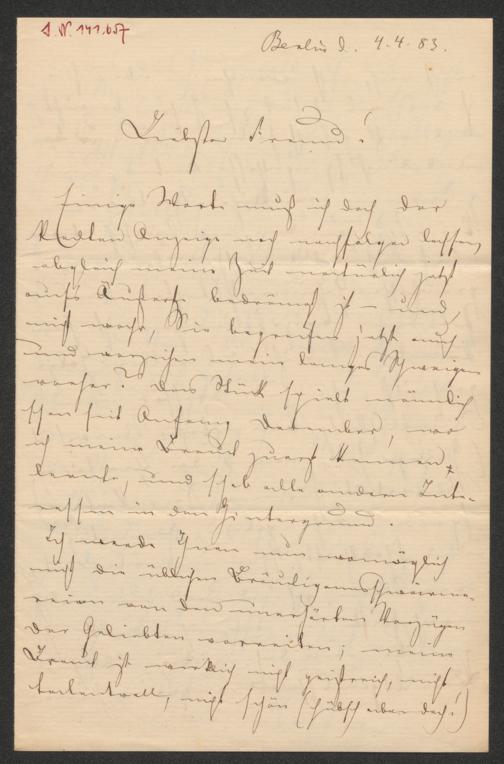 I. N. 141.657
Berlin d. 4.4.83.
Liebster Freund!
Einige Worte muß ich doch der
kalten Anzeige noch nachfolgen lassen,
obgleich meine Zeit natürlich jetzt
aufs Äußerste bedrängt ist – und,
nicht wahr, Sie begreifen jetzt auch
und verzeihen mein langes Schweigen
vorher? Das Stück spielt nämlich
schon seit Anfang Dezember, wo
ich meine Braut zuerst kennen
lernte, und schob alle andern Inte-
ressen in den Hintergrund.
Ich werde Ihnen nun womöglich
nicht die üblichen Bräutigamsschwärme-
reien von den unerhörten Vorzügen
der Geliebten vorreiten; meine
Braut ist wirklich nicht geistreich, nicht
talentvoll, nicht schön (hübsch aber doch!)